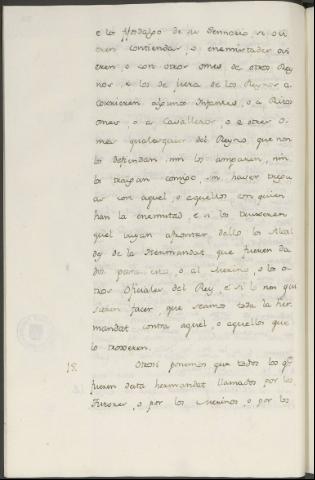 e los fijosdalgo de su Sennorio si ovi
eren contiendas, o enemistades ovi
eren, o con otros omes de otros Rey
nos, e los de fuera de los Reynos a
corrieren algunos Infantes, o a Ricos
omes, o a Cavalleros, o a otros o
mes qualesquier del Reyno, que non
los defiendan nin los amparen, nin
los traigan consigo, ni haver tregu
as con aquel, o aquellos con quien
han la enemistad, e si los truxeren
quel vayan afrontar dello los Alcal
des de la Hermandat, que fueren da
dos para esto, o al Merino, o los o
tros Oficiales del Rey, e si lo non qui
sieren facer, que seamos toda la her
mandat contra aquel, o aquellos que
lo troxeren.
18. Otrosi ponemos que todos los que
fueren desta hermandat llamados por los
Jurados, o por los Merinos, o por los